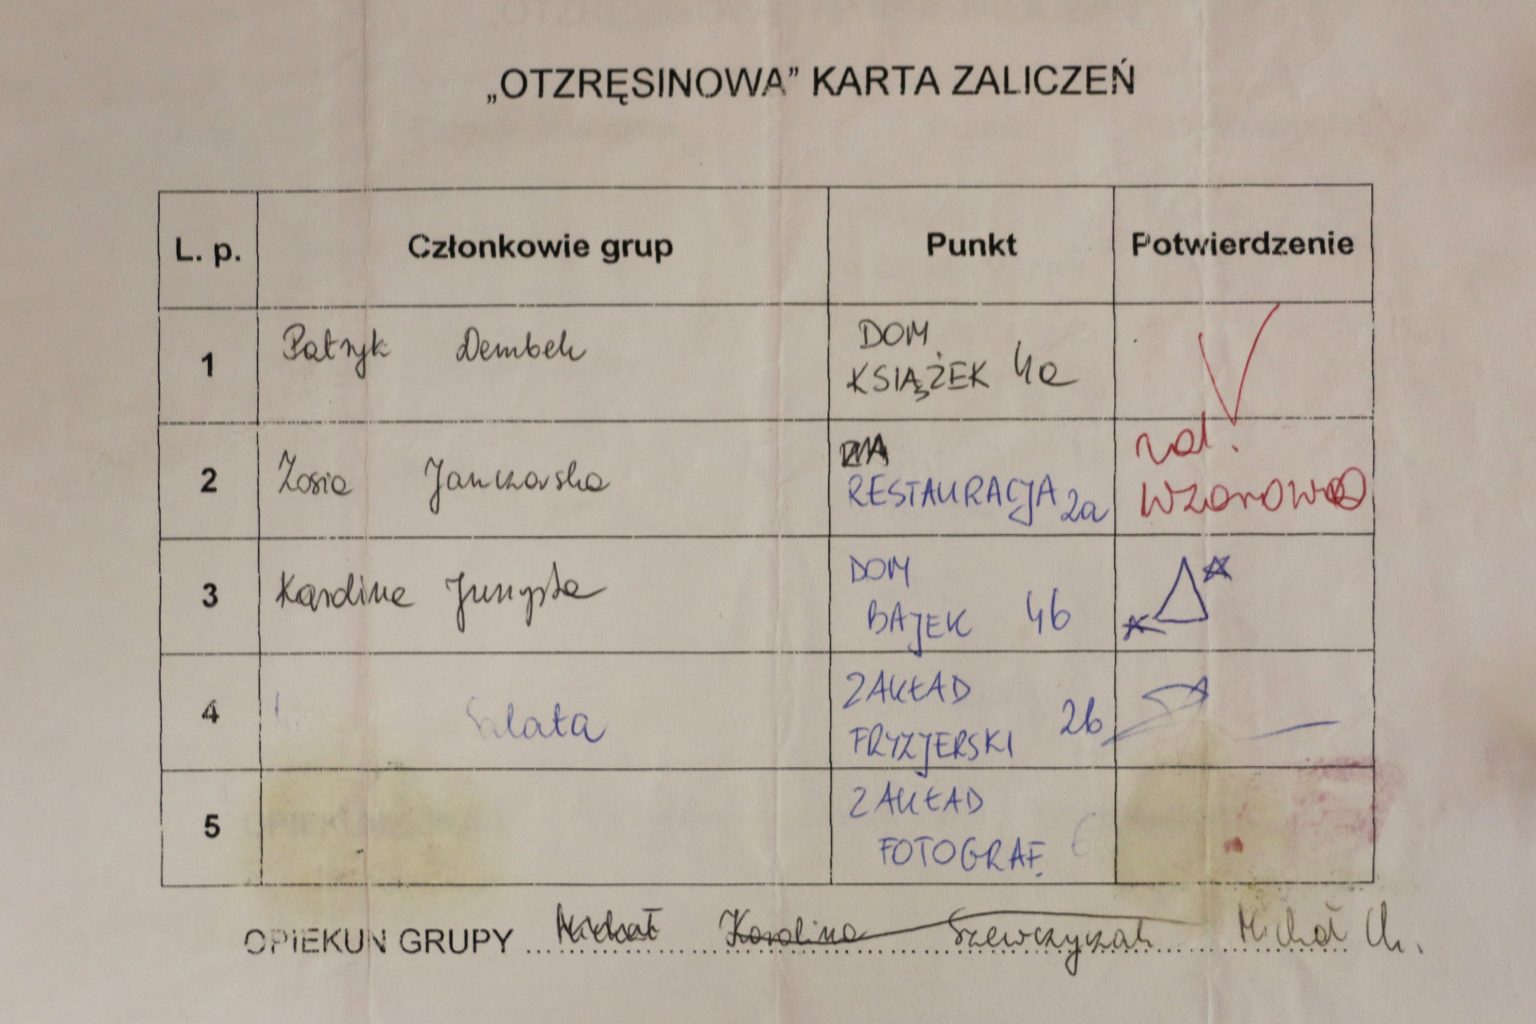 „OTZRĘSINOWA” KARTA ZALICZEŃ
L. p. Członkowie grup Punkt Potwierdzenie
1 Patryk Dembek DOM
KSIĄŻEK 4a
2 Zosia Janczarska RESTAURACJA 2a zal.
WZOROWO
3 Karolina DOM
BAJEK 4b
4 Sałata ZAKŁAD
FRYZJERSKI 2b
5 ZAKŁAD
FOTOGRAF.
OPIEKUN GRUPY Michał Karolina Szewczyczak Michał Ch.